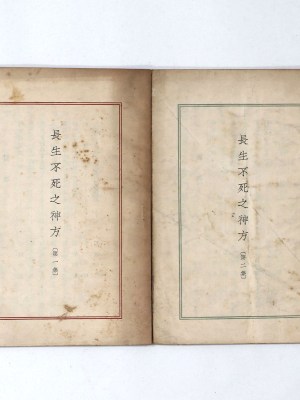 長生不死之神方
(第一集)
長生不死之神方
(第二集)